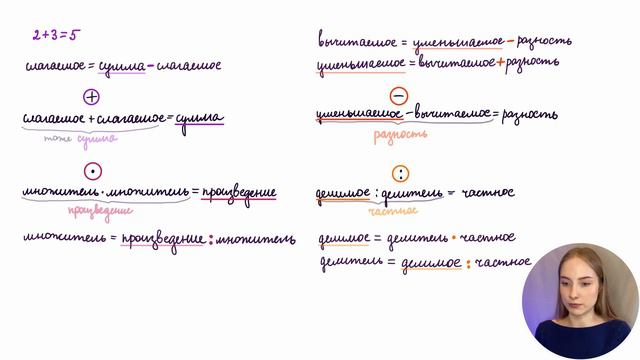 2+3=5
слагаемое = сумма - слагаемое
+
слагаемое + слагаемое = сумма
тоже сумма
·
множитель · множитель = произведение
произведение
множитель = произведение : множитель
вычитаемое = уменьшаемое - разность
уменьшаемое = вычитаемое + разность
-
уменьшаемое - вычитаемое = разность
разность
:
делимое : делитель = частное
частное
делимое = делитель · частное
делитель = делимое : частное